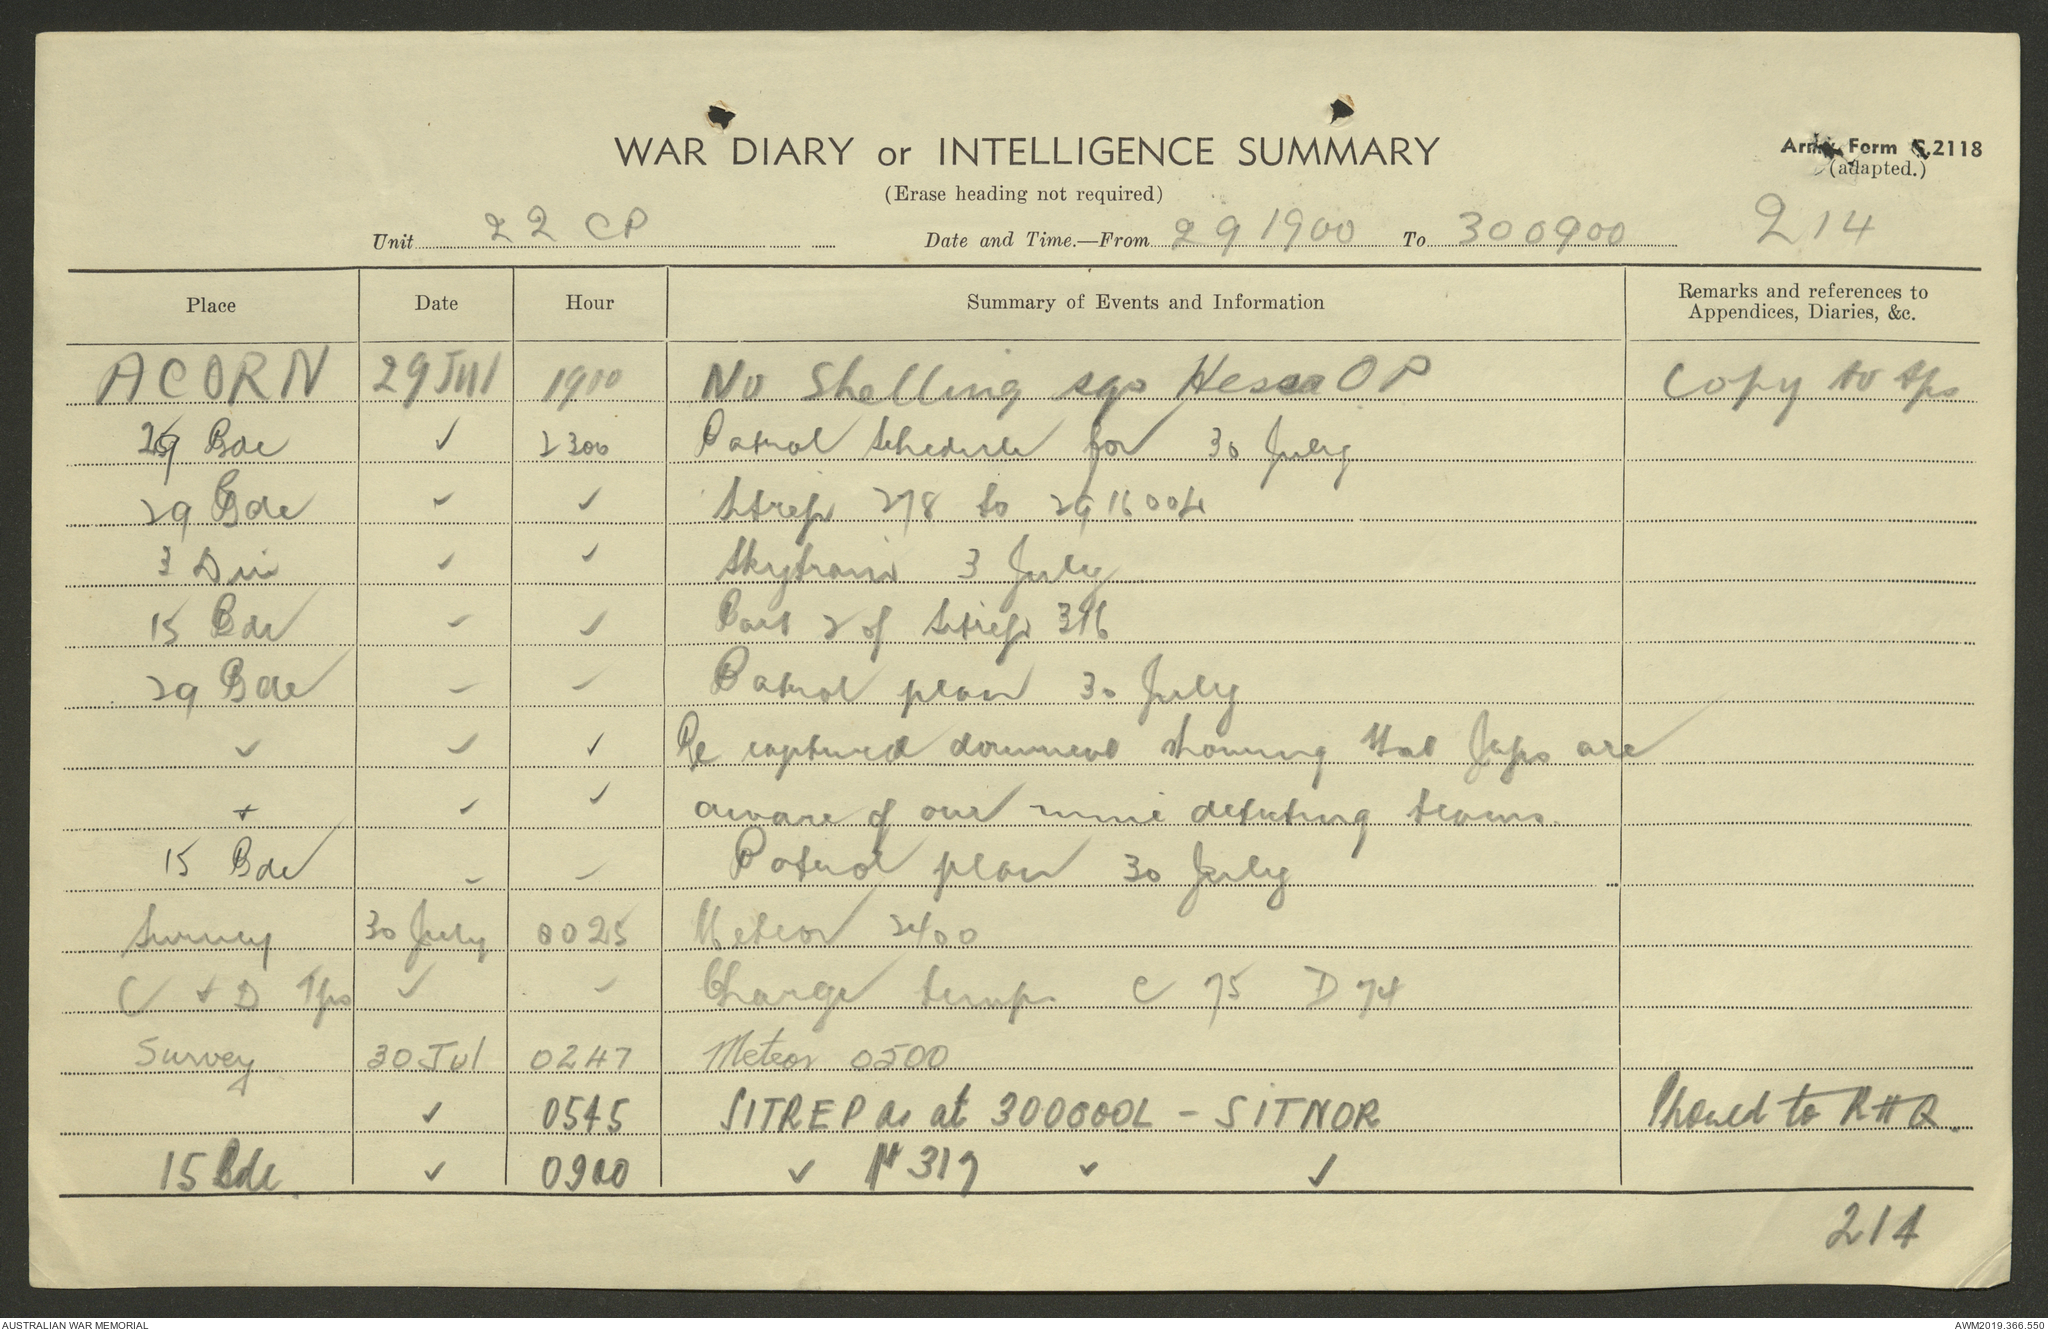 WAR DIARY or INTELLIGENCE SUMMARY
Army Form C.2118
(adapted.)
(Erase heading not required)
Unit 22 CP Date and Time.—From 291900 To 300900 214
Place Date Hour Summary of Events and Information Remarks and references to Appendices, Diaries, &c.
ACORN 29 Jul 1900 No Shelling Hessa OP Copy to tps
29 Bde ✓ 2300 Patrol schedule for 30 July
29 Bde ✓ ✓ Sitrep 278 to 291600L
3 Div ✓ ✓ Skytrain 3 July
15 Bde ✓ ✓ Part 2 of Sitrep 316
29 Bde ✓ ✓ Patrol plan 30 July
✓ ✓ ✓ Re captured document showing that Japs are
✓ ✓ aware of our mine detecting teams
15 Bde ✓ ✓ Patrol plan 30 July
Survey 30 July 0025 Meteor 2400
C + D Tps ✓ ✓ Charge temps C 75 D 74
Survey 30 Jul 0247 Meteor 0500
✓ 0545 SITREP as at 300600L - SITNOR Phoned to RHQ.
15 Bde. ✓ 0900 ✓ 317 ✓ ✓
214
AUSTRALIAN WAR MEMORIAL
AWM2019.366.550